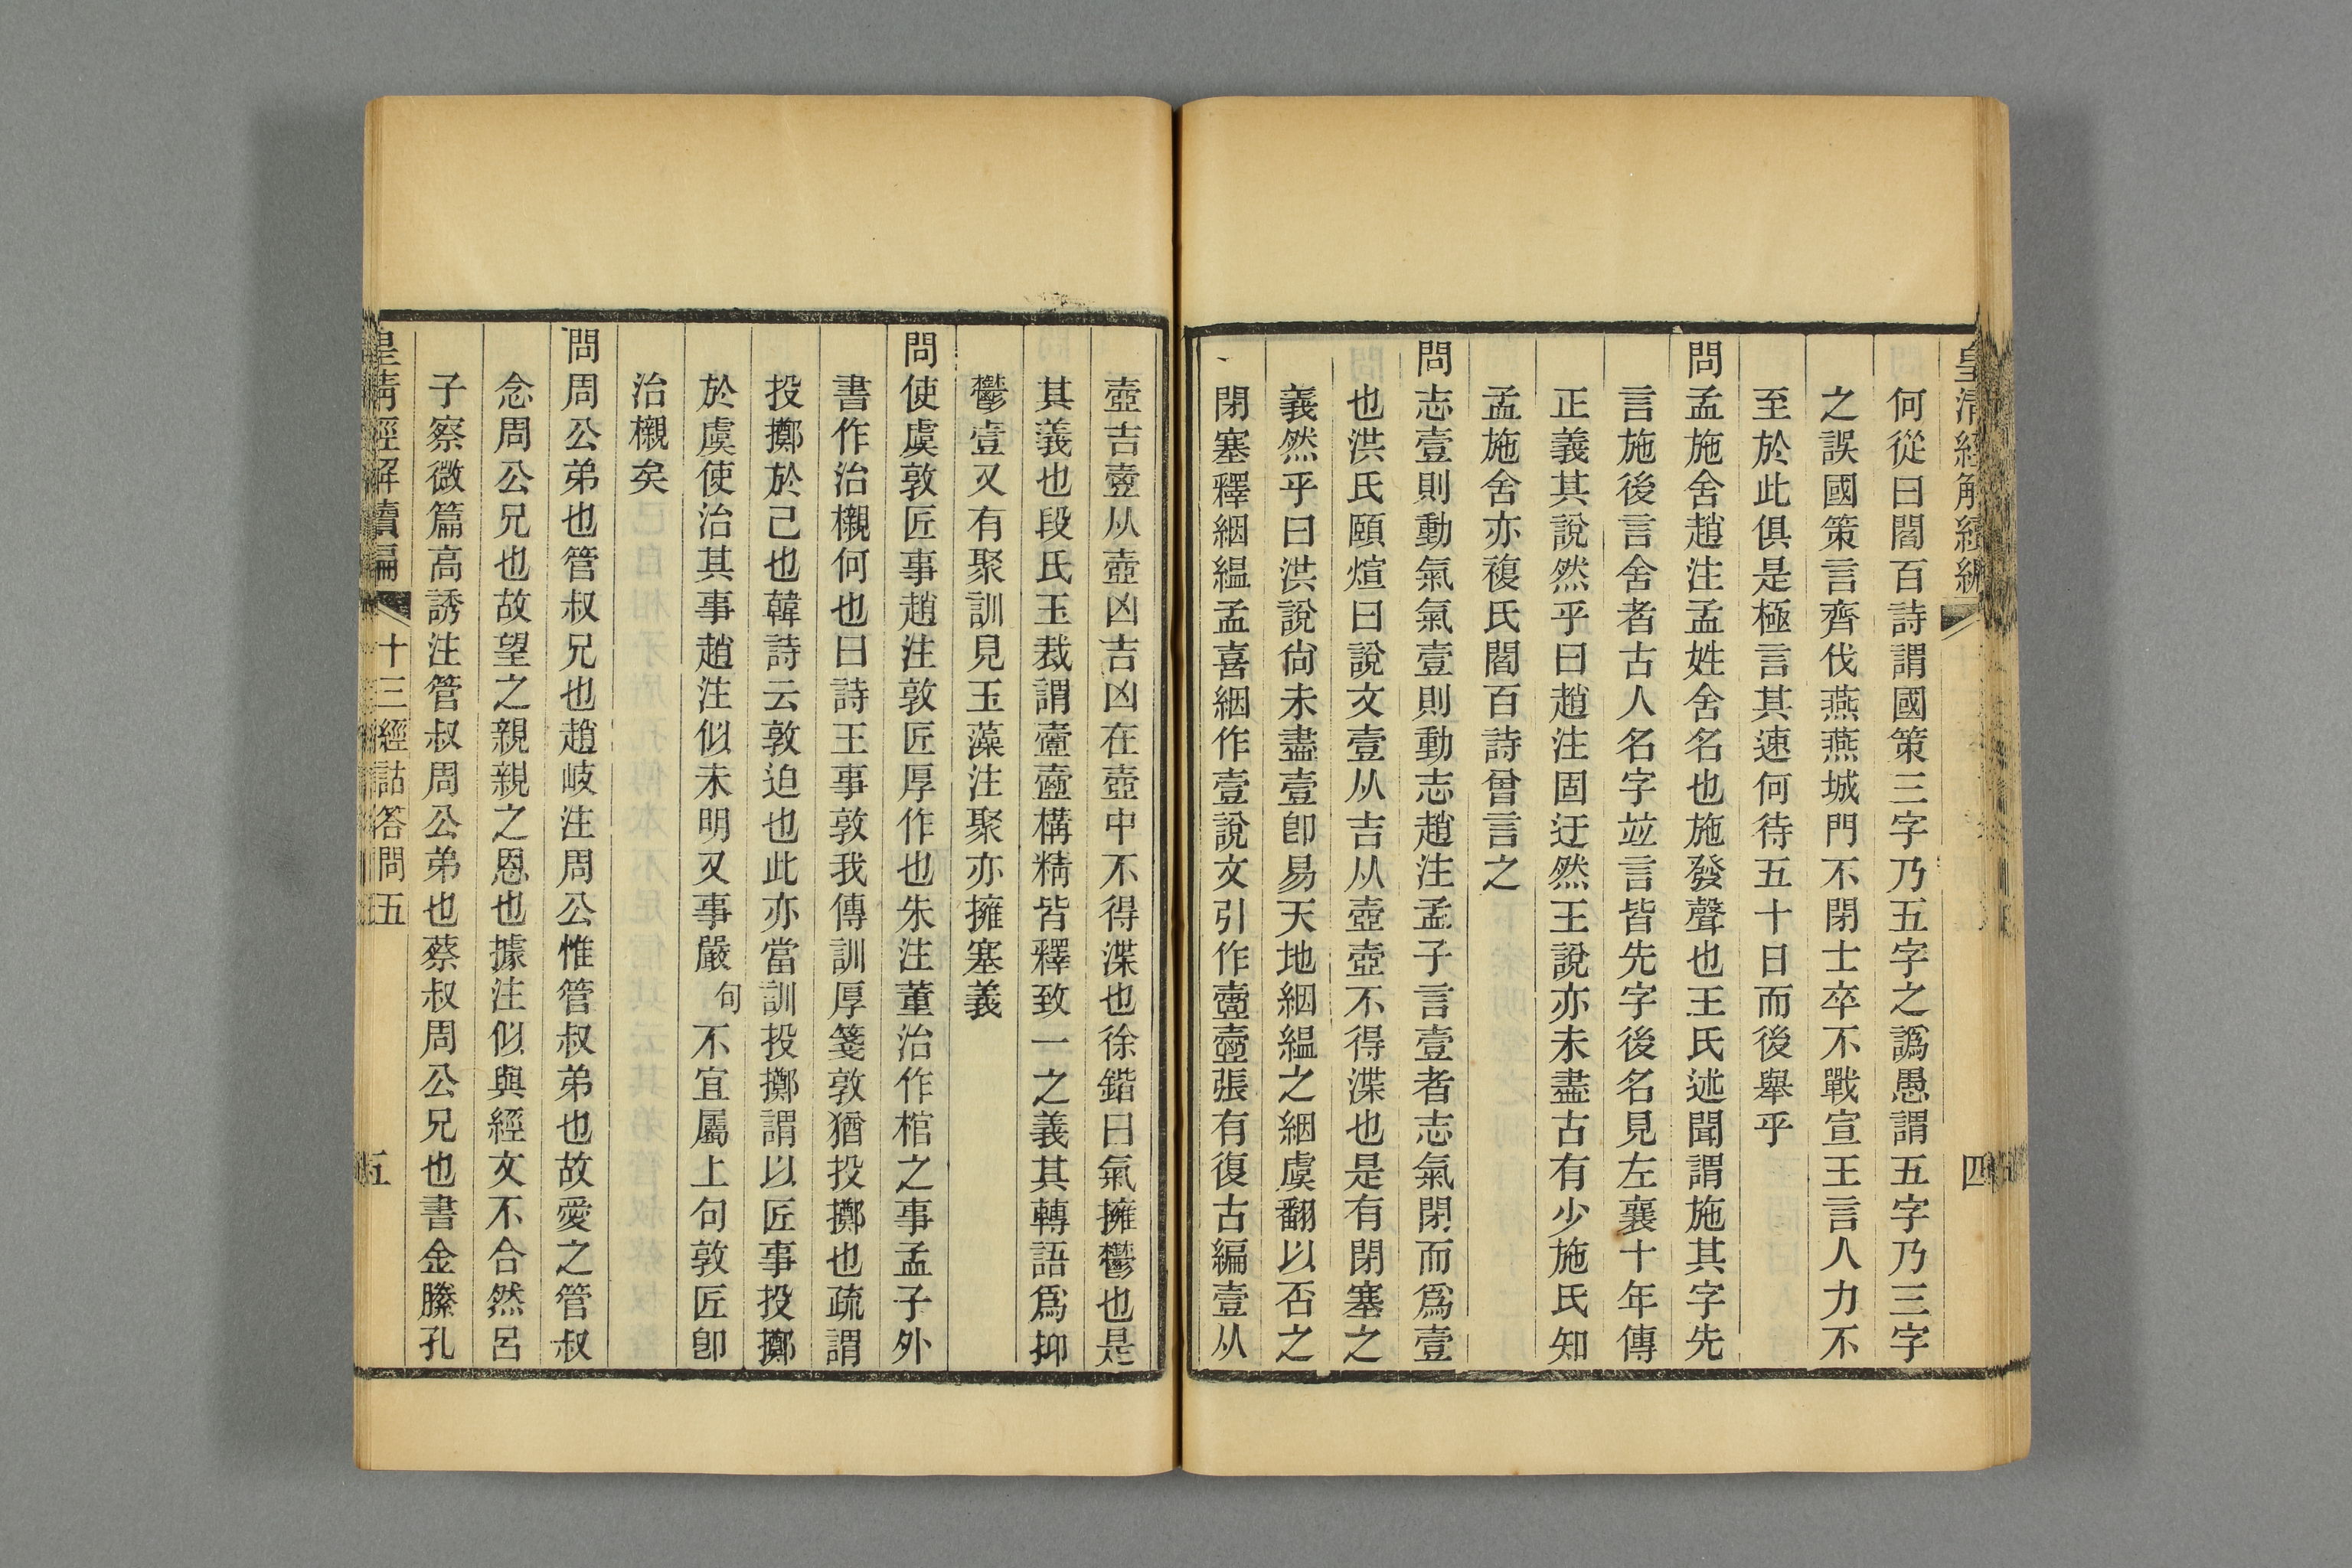 皇清經解續編 四
何從曰閻百詩謂國策三字乃五字之譌愚謂五字乃三字
之誤國策言齊伐燕燕城門不閉士卒不戰宣王言人力不
至於此俱是極言其速何待五十日而後舉乎
問孟施舍趙注孟姓舍名也施發聲也王氏述聞謂施其字先
言施後言舍者古人名字竝言皆先字後名見左襄十年傳
正義其說然乎曰趙注固迂然王說亦未盡古有少施氏知
孟施舍亦複氏閻百詩曾言之
問志壹則動氣氣壹則動志趙注孟子言壹者志氣閉而爲壹
也洪氏頤煊曰說文壹从吉从壺壺不得渫也是有閉塞之
義然乎曰洪說尙未盡壹卽易天地絪縕之絪虞翻以否之
閉塞釋絪縕孟喜絪作壹說文引作壹壺張有復古編壹从
壺吉壼从壺凶吉凶在壺中不得渫也徐鍇曰氣擁鬱也是
其義也段氏玉裁謂壹壺構精皆釋致一之義其轉語爲抑
鬱壹又有聚訓見玉藻注聚亦擁塞義
問使虞敦匠事趙注敦匠厚作也朱注董治作棺之事孟子外
書作治櫬何也曰詩王事敦我傳訓厚箋敦猶投擲也疏謂
投擲於己也韓詩云敦迫也此亦當訓投擲謂以匠事投擲
於虞使治其事趙注似未明又事嚴句不宜屬上句敦匠卽
治櫬矣
問周公弟也管叔兄也趙岐注周公惟管叔弟也故愛之管叔
念周公兄也故望之親親之恩也據注似與經文不合然呂
子察微篇高誘注管叔周公弟也蔡叔周公兄也書金縢孔
皇清經解續編 十三經詁答問五 五